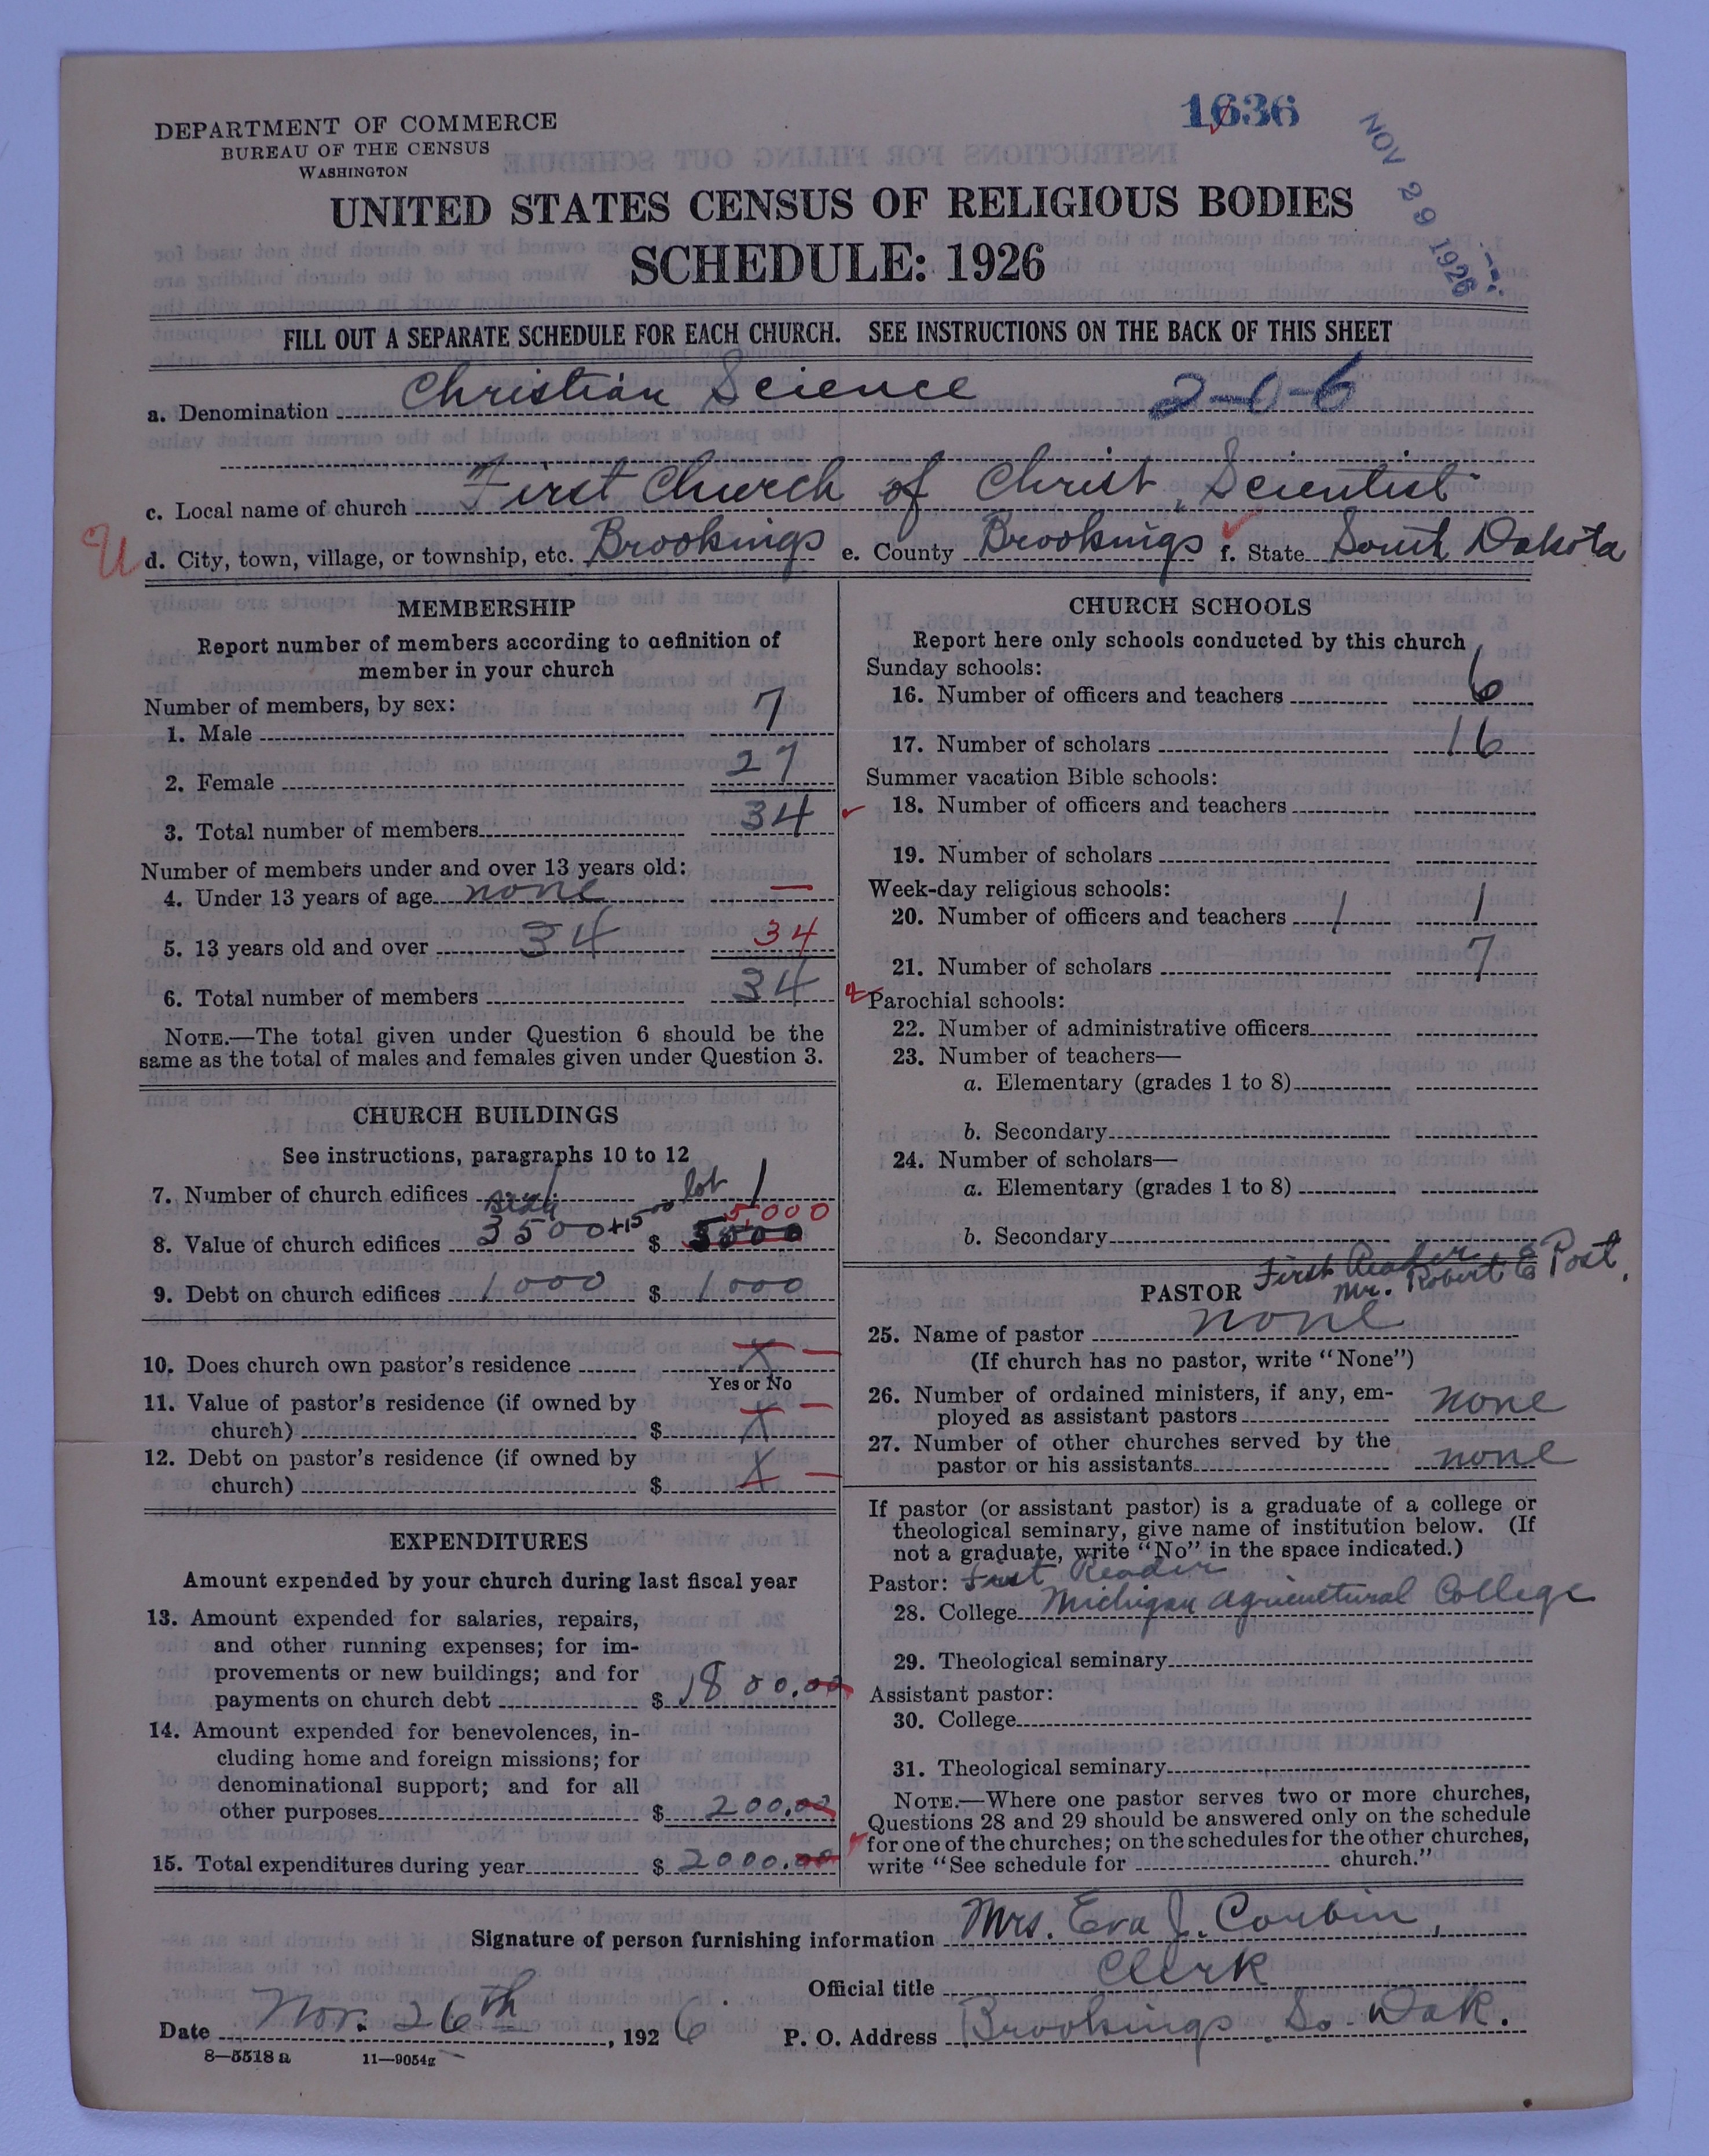 1636
NOV 29 1926
DEPARTMENT OF COMMERCE
BUREAU OF THE CENSUS
WASHINGTON
UNITED STATES CENSUS OF RELIGIOUS BODIES
SCHEDULE: 1926
FILL OUT A SEPARATE SCHEDULE FOR EACH CHURCH. SEE INSTRUCTIONS ON THE BACK OF THIS SHEET
a. Denomination Christian Science 2-0-6
c. Local name of church First Church of Christ, Scientist
U d. City, town, village, or township, etc. Brookings e. County Brookings f. State South Dakota
MEMBERSHIP
Report number of members according to definition of
member in your church
Number of members, by sex:
1. Male 7
2. Female 27
3. Total number of members 34
Number of members under and over 13 years old:
4. Under 13 years of age none —
5. 13 years old and over 34 34
6. Total number of members 34
NOTE.—The total given under Question 6 should be the
same as the total of males and females given under Question 3.
CHURCH BUILDINGS
See instructions, paragraphs 10 to 12
7. Number of church edifices 1 lot 1
5000
8. Value of church edifices 3500 + 1500 $ 5000
9. Debt on church edifices 1000 $ 1000
10. Does church own pastor's residence X —
Yes or No
11. Value of pastor's residence (if owned by
church) $ X —
12. Debt on pastor's residence (if owned by
church) $ X —
EXPENDITURES
Amount expended by your church during last fiscal year
13. Amount expended for salaries, repairs,
and other running expenses; for im-
provements or new buildings; and for
payments on church debt $ 1800.00
14. Amount expended for benevolences, in-
cluding home and foreign missions; for
denominational support; and for all
other purposes $ 200.00
15. Total expenditures during year $ 2000.00
CHURCH SCHOOLS
Report here only schools conducted by this church
Sunday schools:
16. Number of officers and teachers 6
17. Number of scholars 16
Summer vacation Bible schools:
18. Number of officers and teachers
19. Number of scholars
Week-day religious schools:
20. Number of officers and teachers 1 1
21. Number of scholars 7
Parochial schools:
22. Number of administrative officers
23. Number of teachers—
a. Elementary (grades 1 to 8)
b. Secondary
24. Number of scholars—
a. Elementary (grades 1 to 8)
b. Secondary
First Reader
PASTOR Mr. Robert E Post.
25. Name of pastor none
(If church has no pastor, write "None")
26. Number of ordained ministers, if any, em-
ployed as assistant pastors none
27. Number of other churches served by the
pastor or his assistants none
If pastor (or assistant pastor) is a graduate of a college or
theological seminary, give name of institution below. (If
not a graduate, write "No" in the space indicated.)
Pastor: First Reader
28. College Michigan Agricultural College
29. Theological seminary
Assistant pastor:
30. College
31. Theological seminary
NOTE.—Where one pastor serves two or more churches,
Questions 28 and 29 should be answered only on the schedule
for one of the churches; on the schedules for the other churches,
write "See schedule for church."
Signature of person furnishing information Mrs. Eva J. Corbin,
Official title Clerk
Date Nov. 26th, 1926 P. O. Address Brookings So. Dak.
8—5518 a 11—9054g